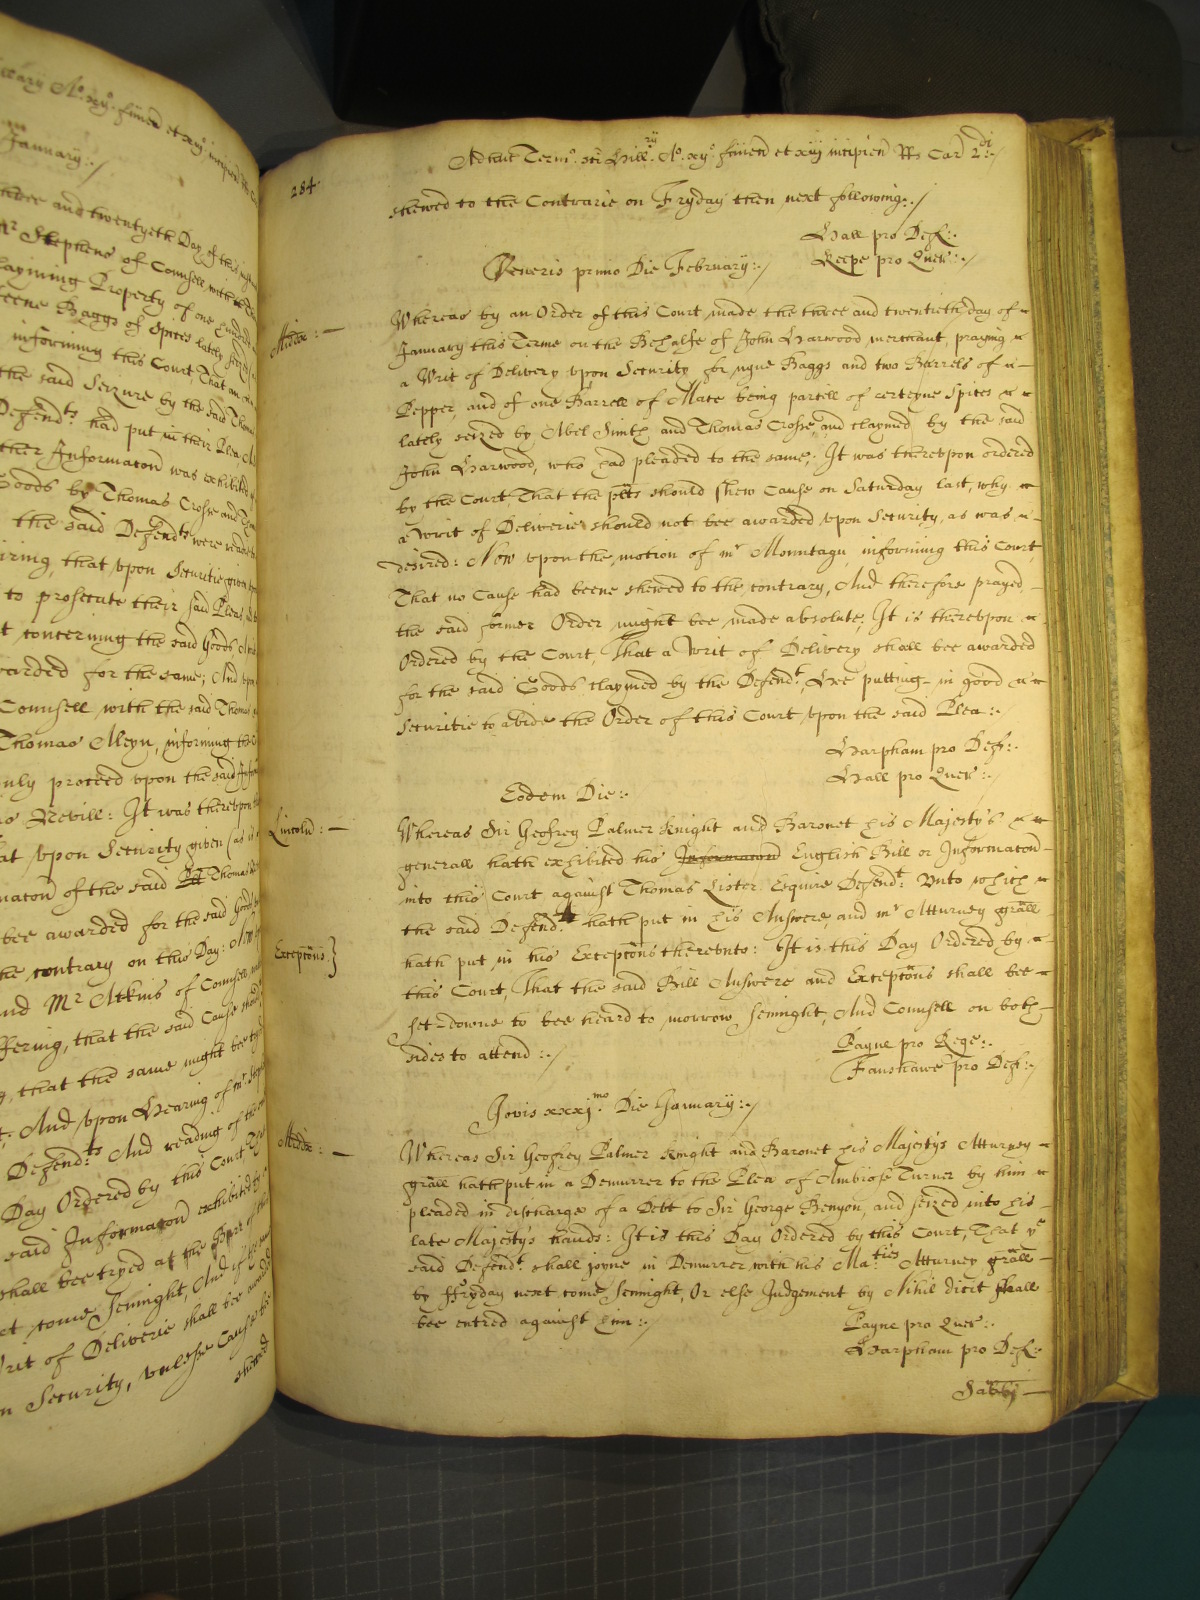 illary Ao. xvo. finien et xvjo. incipien
January:/
three and twentyeth Day of this
Mr Stephens of Counsell with
layming Property of one hundred
teene Baggs of Spices lately
informing this Court, That an
the said Seizure by the said Thomas
Defendts. had put in their Plea
ther Informacon was exhibited
Goods by Thomas Crosse and
the said Defendts were
iring, that upon Securitie given
to prosecute their said Pleas
t concerning the said Goods
warded for the same; And upon
Counsell with the said Thomas
Thomas Aleyn, informing the
nly proceed upon the said
Nevill: It was thereupon
at upon Security given (as is
macon of the said Thomas
bee awarded for the said Goods
he contrary on this Day: Now
nd Mr Atkins of Counsell
ffering, that the said Cause should
g, that the same might bee
t: And upon Hearing of mr.
Defendts: And reading of the
Day Ordered by this Court
said Informacon exhibited by
shall bee tryed at the Barr of this
xt come Sennight, And if
rit of Deliverie shall bee
n Security, unlesse Cause bee
shewed
284.
Adhuc Termo. sci Hillry. Ao. xvo. finien et xvj incipien Rs Car 2di:/
shewed to the Contrarie on Fryday then next following:/
Hall pro Def:.
Keepe pro Quer:./
Veneris primo Die February:/
Midds:
Whereas by an Order of this Court made the three and twentieth day of
January this Terme on the Behalfe of John Harwood merchant, praying
a Writ of Delivery upon Security for nyne Baggs and two Barrels of
Pepper, and of one Barrell of Mace being parcell of certeyne Spices
lately seized by Abel Smith and Thomas Crosse, and claymed by the said
John Harwood, who had pleaded to the same; It was thereupon ordered
by the Court That the plts should shew Cause on Saturday last, why
a Writ of Deliverie should not bee awarded upon Security, as was
desired: Now upon the motion of mr Mountagu informing this Court,
That no Cause had beene shewed to the contrary, And therefore prayed
the said former Order might bee made absolute; It is thereupon
Ordered by the Court, That a Writ of Delivery shall bee awarded
for the said Goods claymed by the Defendt, Hee putting in good
Securitie to abide the Order of this Court upon the said Plea:/
Harpham pro Def:.
Hall pro Quer:/
Eodem Die:.
Lincoln:
Whereas Sir Geofrey Palmer Knight and Baronet his Majesty's
generall hath exhibited his Informacon English Bill or Informacon
into this Court against Thomas Lister Esquire Defendt: Unto which
the said Defendt. hath put in his Answere, and mr Atturney grall
Excepcons }
hath put in his Excepcons thereunto: It is this Day Ordered by
this Court, That the said Bill Answere and Excepcons shall bee
set-downe to bee heard to morrow Sennight, And Counsell on both
sides to attend:/
Payne pro Rege:.
Fanshawe pro Def:/
Jovis xxxjmo. Die January:/
Midds:
Whereas Sir Geofrey Palmer Knight and Baronet his Majestys Atturney
grall hath put in a Demurrer to the Plea of Ambrose Turner by him
pleaded in discharge of a Debt to Sir George Benyon, and seized into his
late Majestys hands: It is this Day Ordered by this Court, That ye
said Defendt. shall joyne in Demurrer with his Ma:ties Atturney grall
by ffryday next come Sennight, Or else Judgement by Nihil dicit shall
bee entred against him:/
Payne pro Quer:.
Harpham pro Def:.